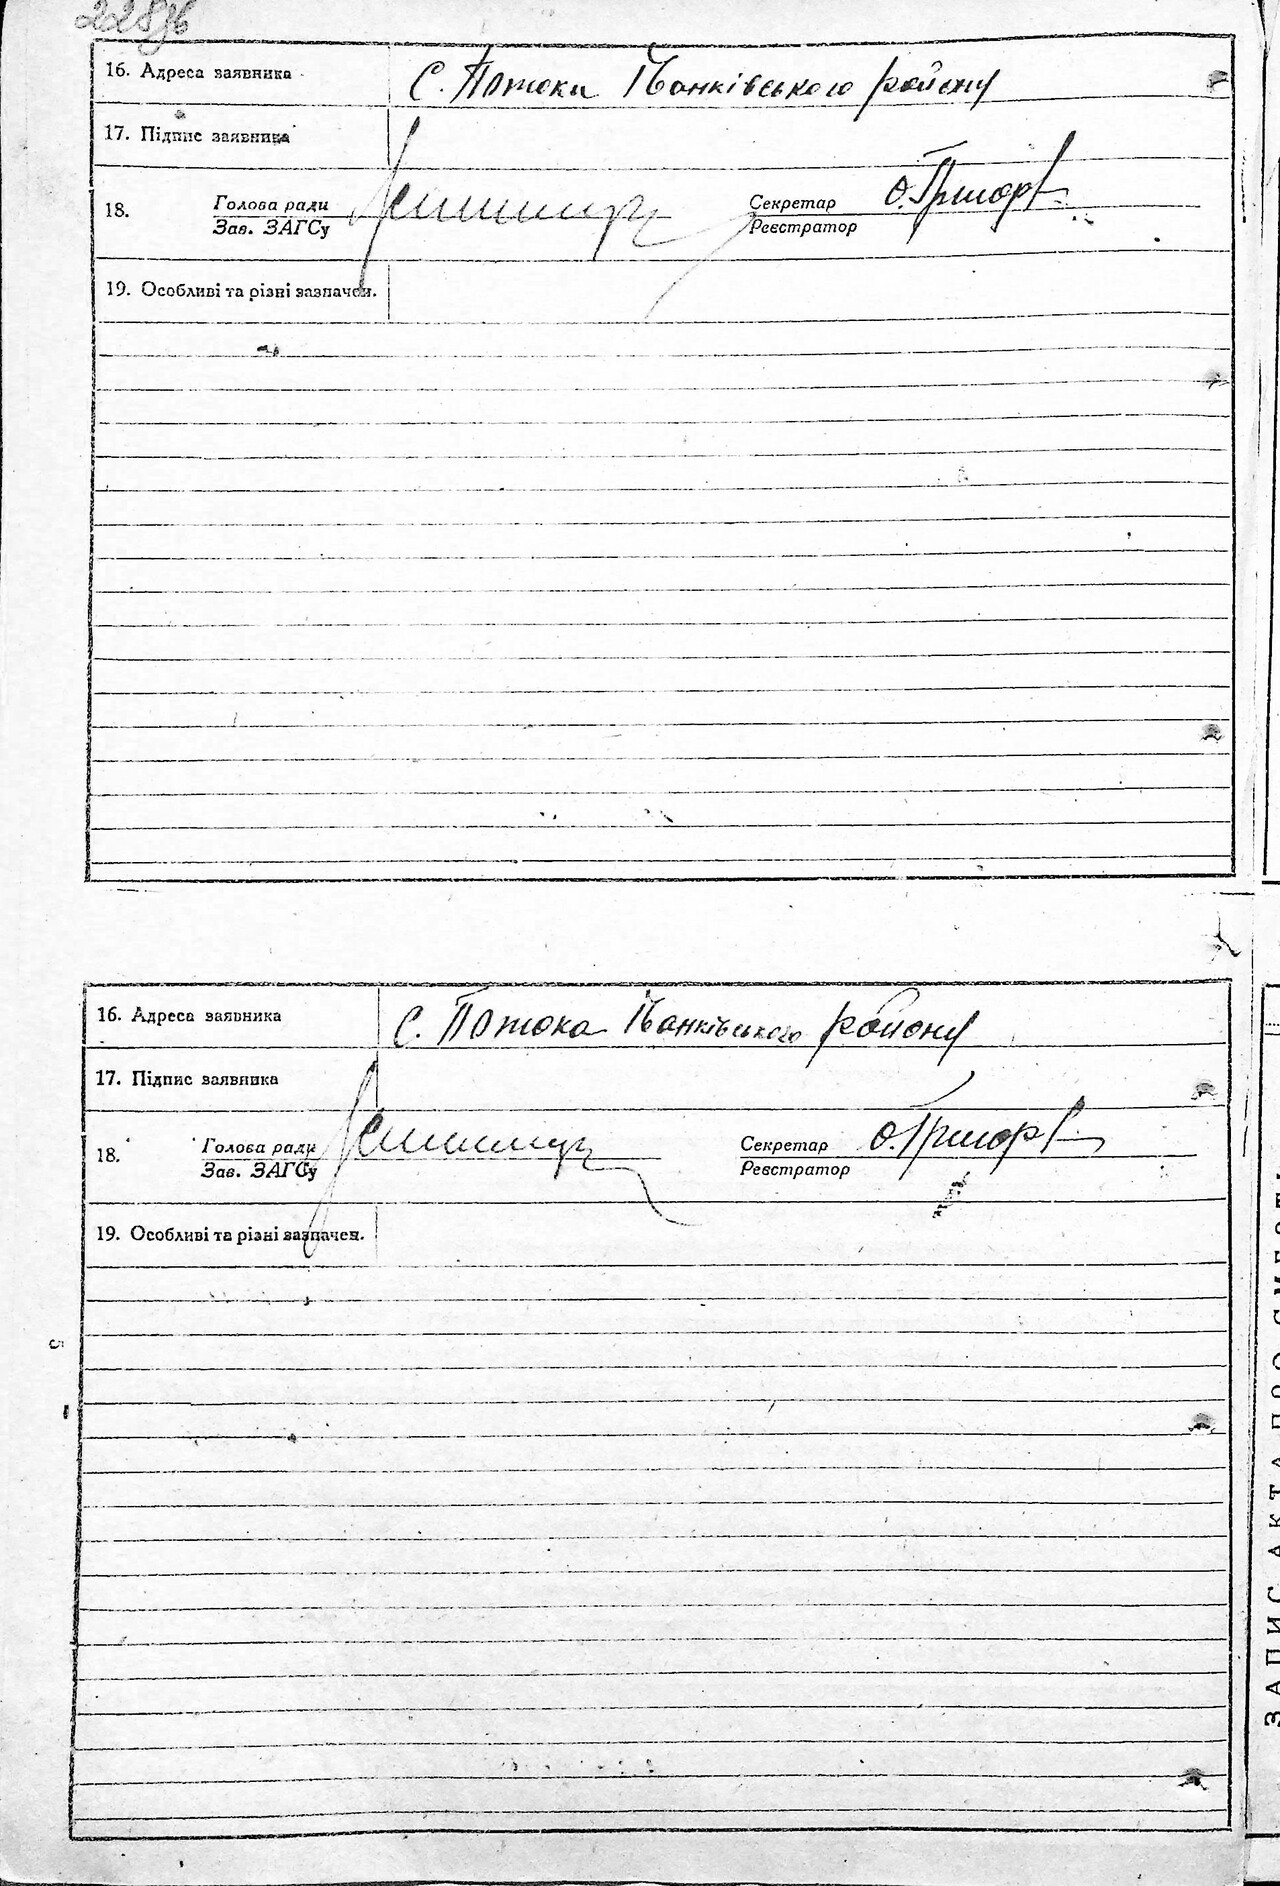 228зв
16. Адреса заявника С. Потоки Таньківського району
17. Підпис заявника
18. Голова ради Секретар О. Григор
Зав. ЗАГСу Реєстратор
19. Особливі та різні зазначен.
16. Адреса заявника С. Потока району
17. Підпис заявника
18. Голова ради Секретар О. Григор
Зав. ЗАГСу Реєстратор
19. Особливі та різні зазначен.
ЗАПИС АКТА ПРО СМЕРТЬ